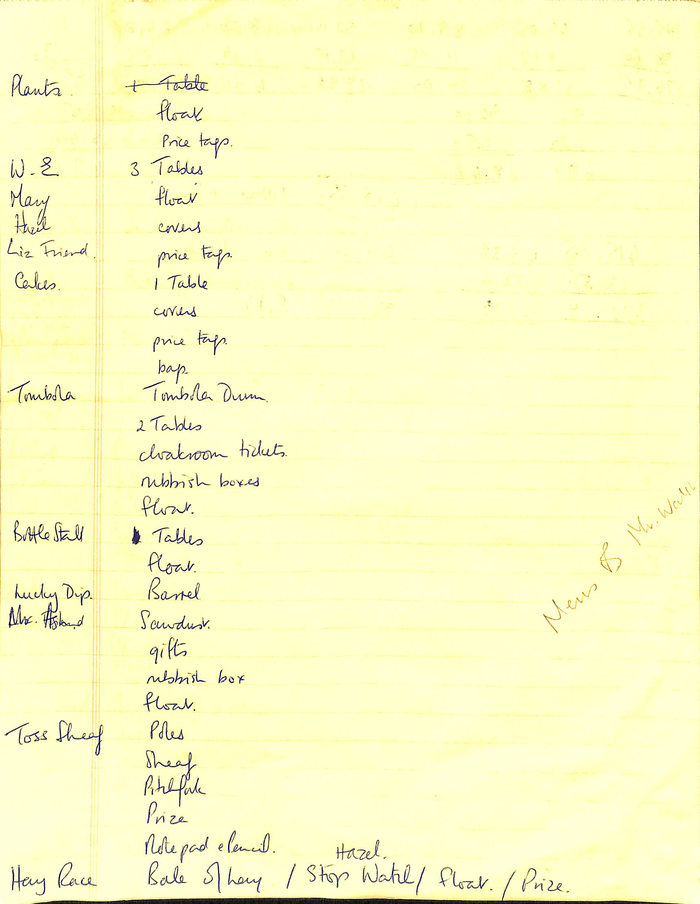 Plants. 1 Table
float
Price tags.
W. E 3 Tables
Mary float
Hazel covers
Liz Friend. price tags.
Cakes. 1 Table
covers
price tags.
bags.
Tombola Tombola Drum.
2 Tables
cloakroom tickets.
rubbish boxes
float.
Bottle Stall Tables
float.
Lucky Dip. Barrel
Sawdust.
gifts
rubbish box
float.
Toss Sheaf Poles
Sheaf
Pitchfork
Prize
Note pad & Pencil.
Hazel.
Hay Race Bale of hay / Stop Watch / float. / Prize.
Mr.